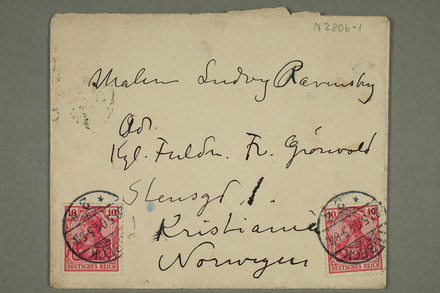 N2806-1
Maleren Ludvig Ravensberg
Adr.
Kgl. Fuldm. Fr. Grönvold
Stensgd. 1.
Kristiania
Norwegen
10 10
DEUTSCHES REICH
10 10
DEUTSCHES REICH